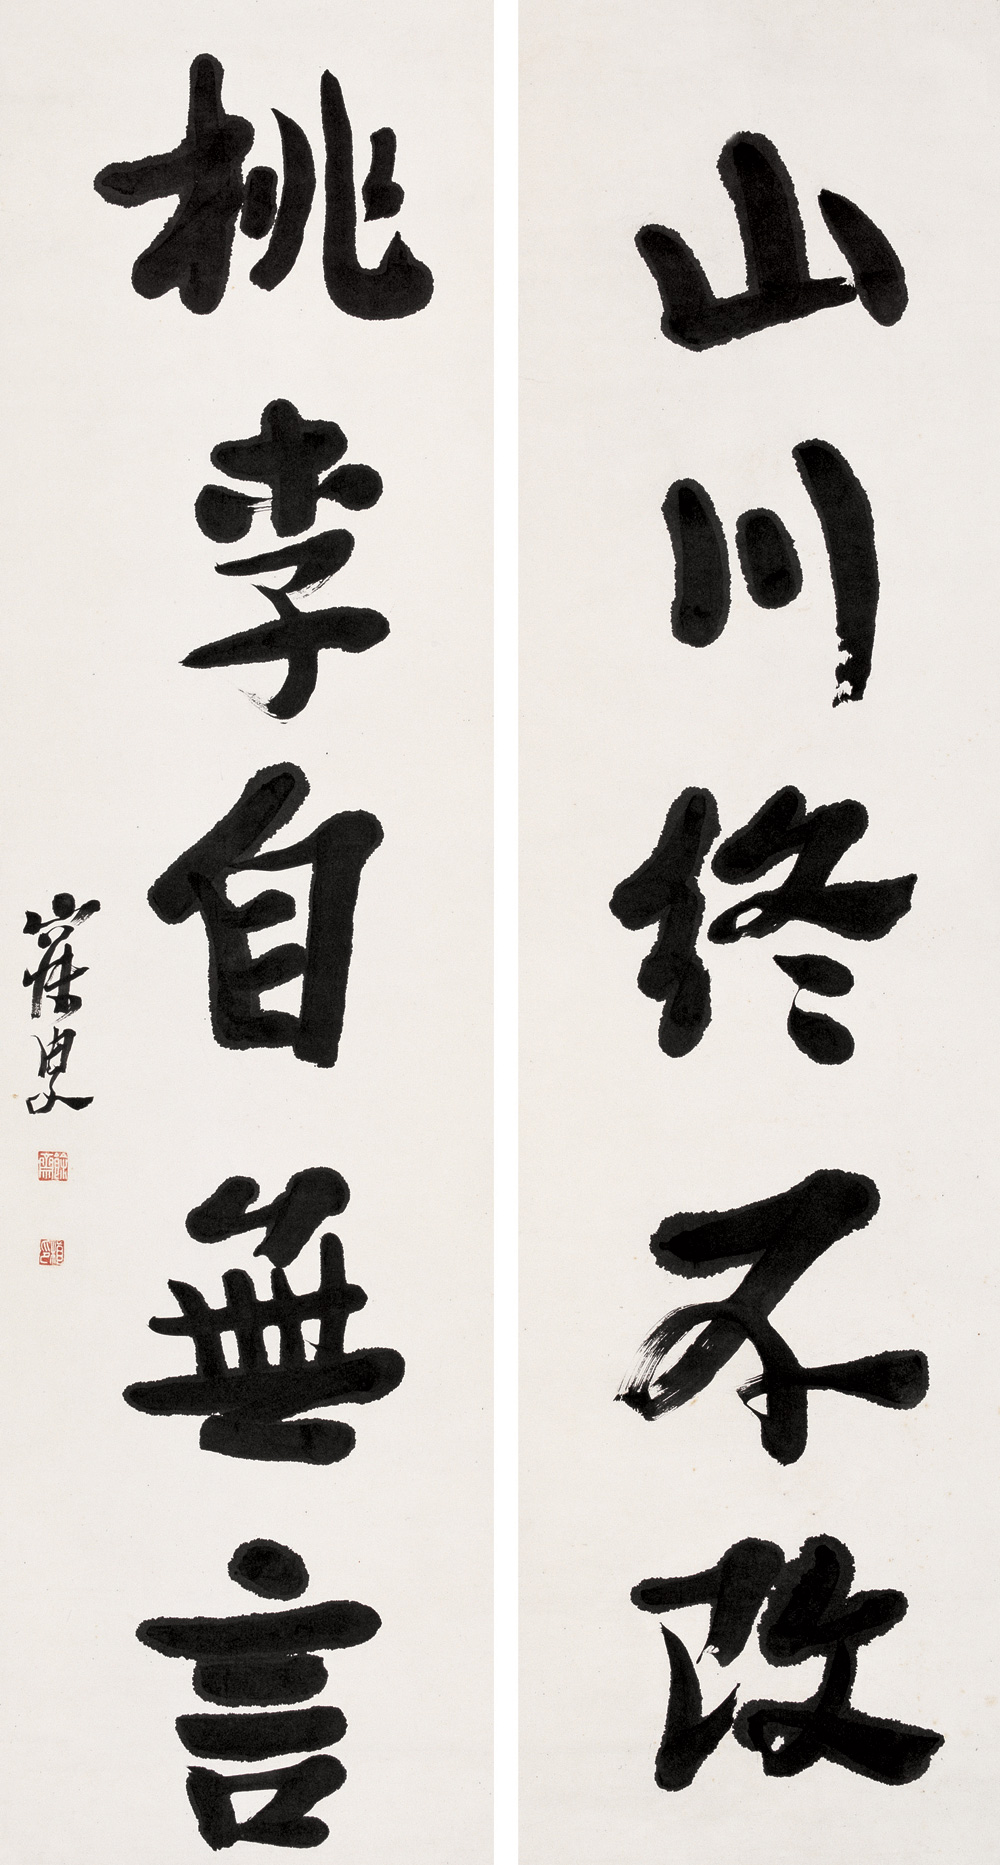 山川終不改
桃李自無言
崔叟